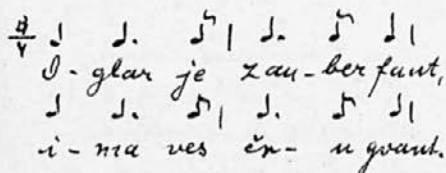 I-glar je zau-ber fant,
i-ma ves čr-n gvant.